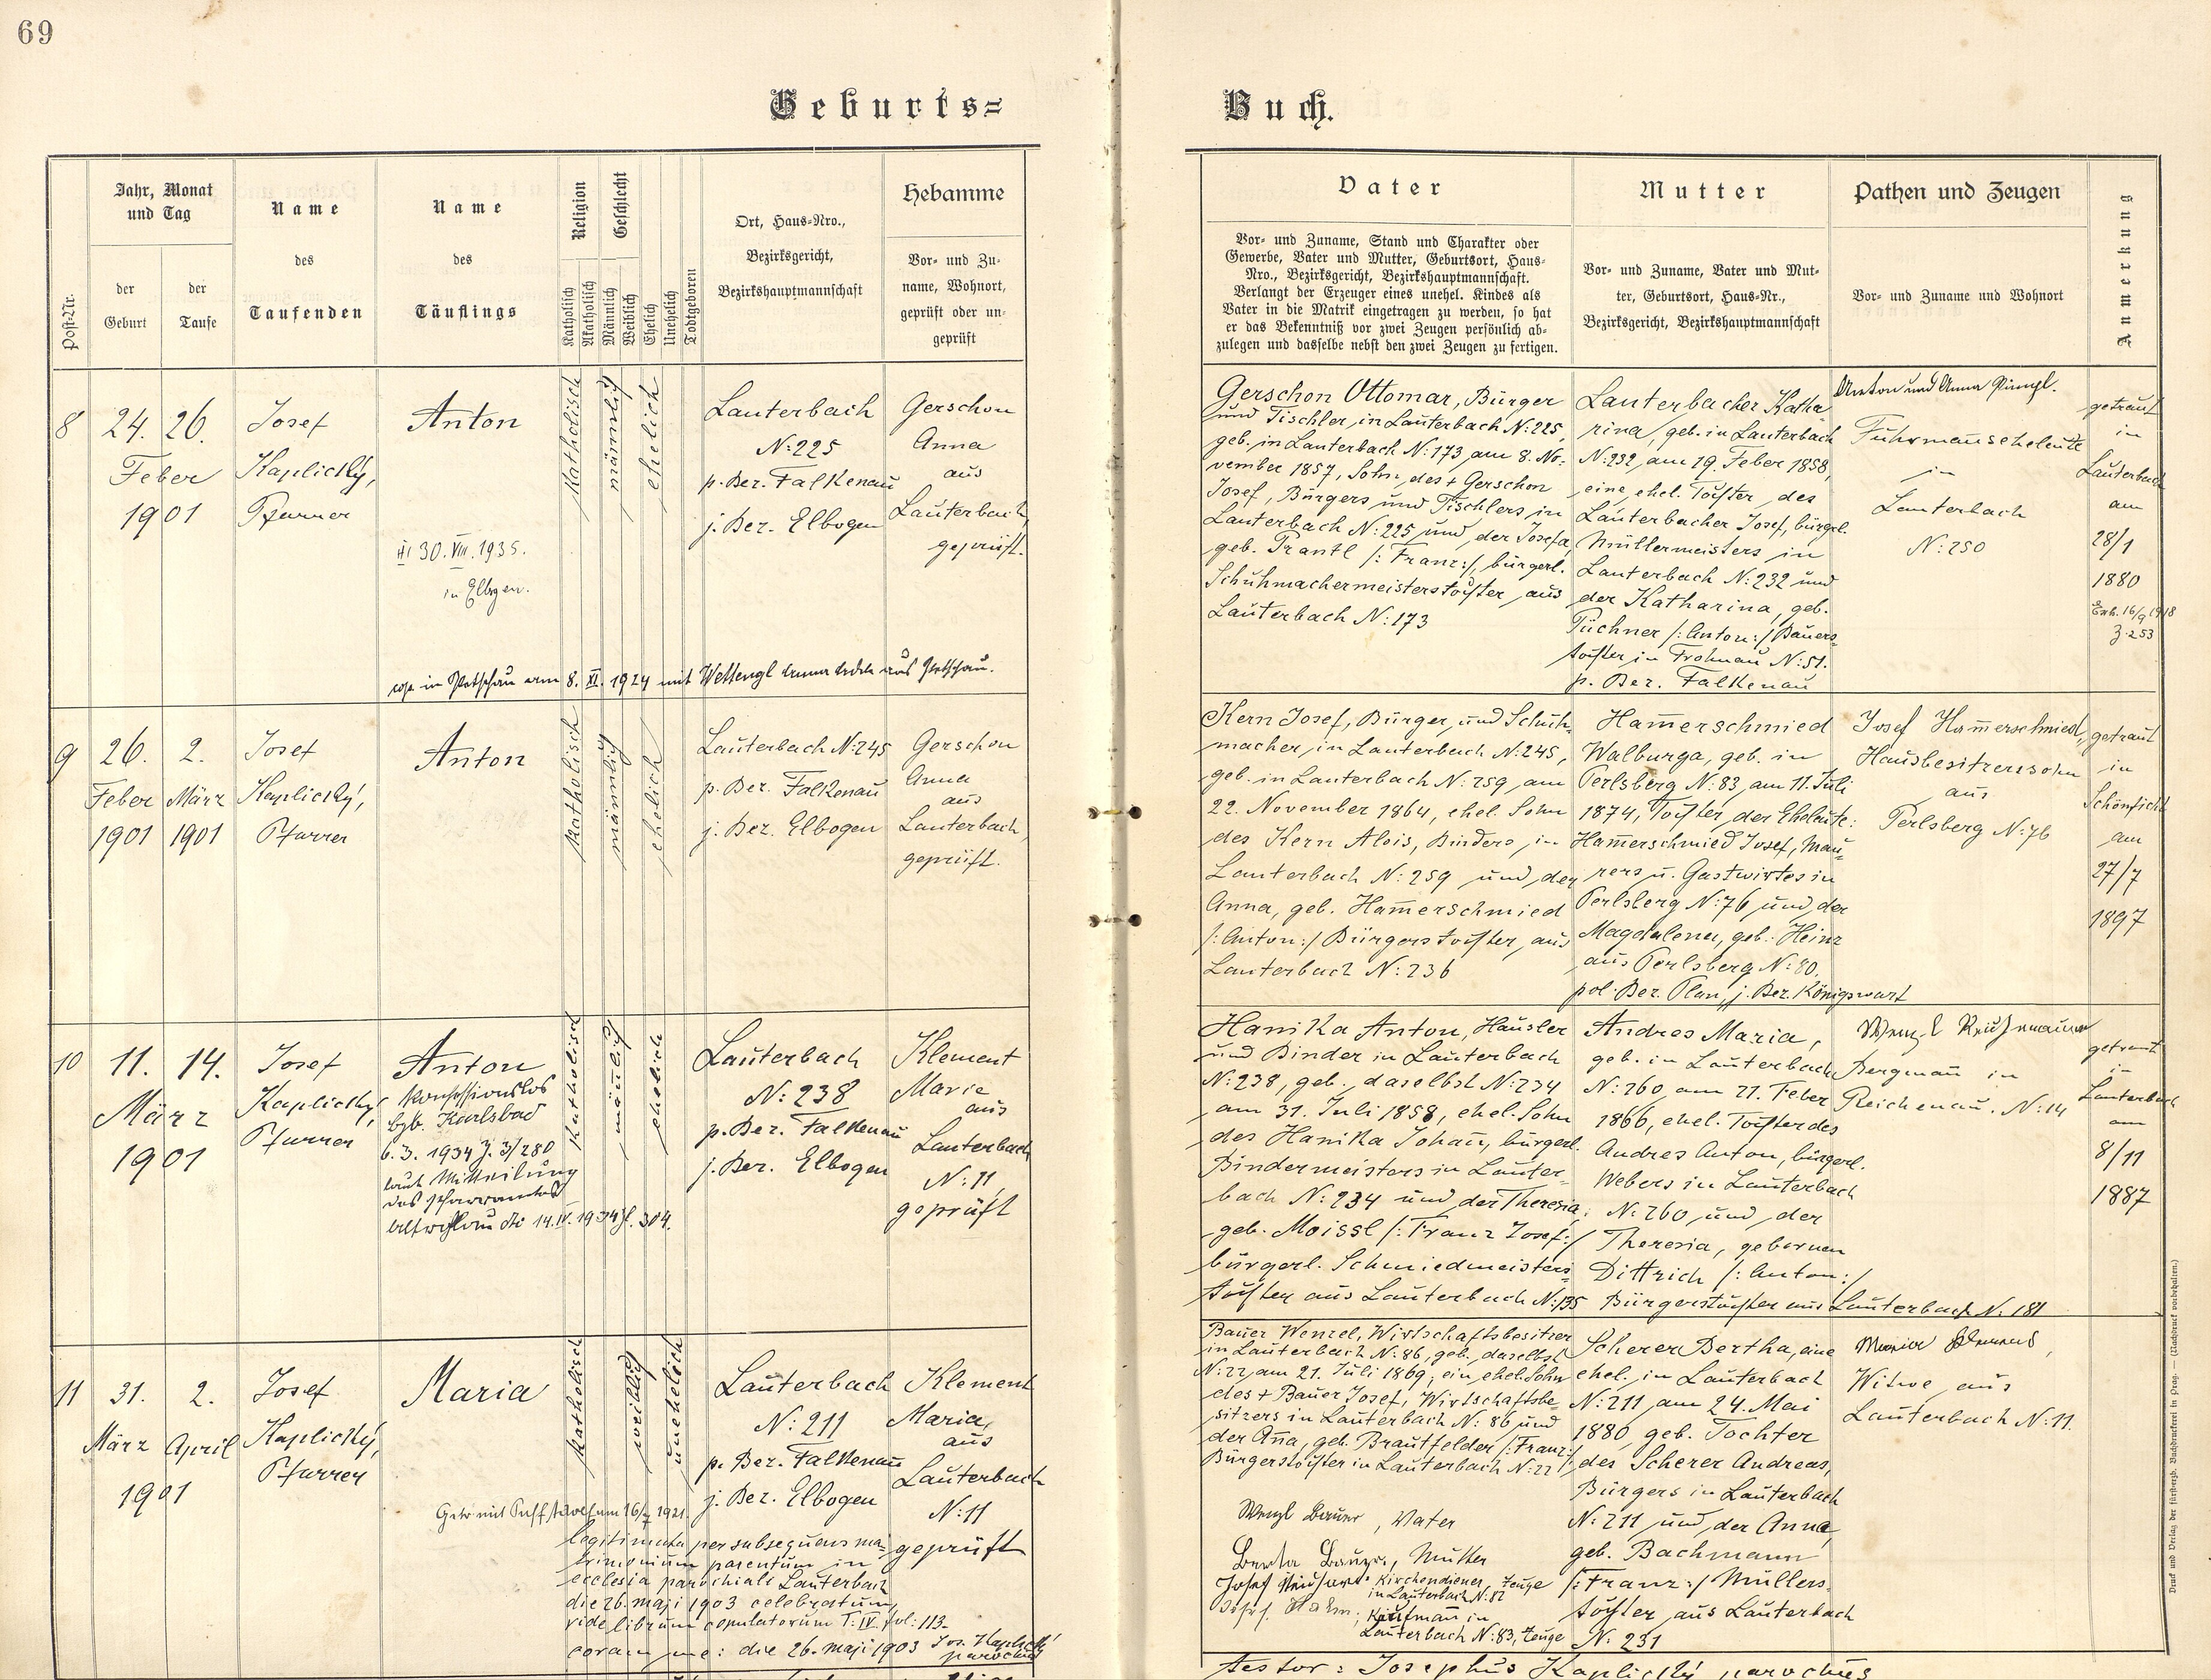 69
Geburts=
Buch.
Post-Nr.
Jahr, Monat
und Tag
der
Geburt
der
Taufe
Name
des
Taufenden
Name
des
Täuflings
Religion
Katholisch
Akatholisch
Geschlecht
Männlich
Weiblich
Ehelich
Unehelich
Todtgeboren
Ort, Haus-Nro.,
Bezirksgericht,
Bezirkshauptmannschaft
Hebamme
Vor- und Zu-
name, Wohnort,
geprüft oder un-
geprüft
Vater
Vor- und Zuname, Stand und Charakter oder
Gewerbe, Vater und Mutter, Geburtsort, Haus-
Nro., Bezirksgericht, Bezirkshauptmannschaft.
Verlangt der Erzeuger eines unehel. Kindes als
Vater in die Matrik eingetragen zu werden, so hat
er das Bekenntniß vor zwei Zeugen persönlich ab-
zulegen und dasselbe nebst den zwei Zeugen zu fertigen.
Mutter
Vor- und Zuname, Vater und Mut-
ter, Geburtsort, Haus-Nr.,
Bezirksgericht, Bezirkshauptmannschaft
Pathen und Zeugen
Vor- und Zuname und Wohnort
Anmerkung
8
24. 26.
Feber
1901
Josef
Kaplický,
Pfarrer
Anton
30. VIII. 1935.
in Elbogen.
katholisch
männlich
ehelich
Lauterbach
N: 225
p. Bez. Falkenau
j. Bez. Elbogen
Gerschon
Anna
aus
Lauterbach,
geprüft.
cop. in Petschau am 8. XI. 1924 mit Wettengl Anna aus Petschau.
Gerschon Ottomar, Bürger
und Tischler in Lauterbach N: 225,
geb. in Lauterbach N: 173 am 8. No-
vember 1857, Sohn des + Gerschon
Josef, Bürgers und Tischlers in
Lauterbach N: 225 und der Josefa,
geb. Trantl /: Franz :/, bürgerl.
Schuhmachermeisterstochter aus
Lauterbach N: 173
Lauterbacher Katha
rina, geb. in Lauterbach
N: 232 am 19. Feber 1858,
eine ehel. Tochter des
Lauterbacher Josef, bürgerl.
Müllermeisters in
Lauterbach N: 232 und
der Katharina, geb.
Püchner /: Anton :/ Bauers-
tochter in Frohnau N: 51.
p. Bez. Falkenau
Anton und Anna
Fuhrmannseheleute
in
Lauterbach
N: 250
getraut
in
Lauterbach
am
28/1
1880
16/9 1918
Z. 253
9
26.
Feber
1901
2.
März
1901
Josef
Kaplický,
Pfarrer
Anton
katholisch
männlich
ehelich
Lauterbach N: 245
p. Bez. Falkenau
j. Bez. Elbogen
Gerschon
Anna
aus
Lauterbach,
geprüft.
Kern Josef, Bürger und Schuh-
macher in Lauterbach N: 245,
geb. in Lauterbach N: 259 am
22. November 1864, ehel. Sohn
des Kern Alois, Binders in
Lauterbach N: 259 und der
Anna, geb. Ham̄erschmied
/: Anton :/ Bürgerstochter aus
Lauterbach N: 236
Ham̄erschmied
Walburga, geb. in
Perlsberg N: 83 am 11. Juli
1874, Tochter der Eheleute:
Ham̄erschmied Josef, Mau-
rers u. Gastwirtes in
Perlsberg N: 76 und der
Magdalena, geb. Heinz
aus Perlsberg N: 80,
pol. Bez. Plan, j. Bez. Königswart
Josef Ham̄erschmied,
Hausbesitzerssohn
aus
Perlsberg N: 76
getraut
in
Schönficht
am
27/7
1897
10
11. 14.
März
1901
Josef
Kaplický,
Pfarrer
Anton
konfessionslos
Karlsbad
6. 3. 1934 Z. 3/280
laut Mitteilung
des Pfarramtes
14. IV. 1934 Z. 304.
katholisch
männlich
ehelich
Lauterbach
N: 238
p. Bez. Falkenau
j. Bez. Elbogen
Klement
Marie
aus
Lauterbach
N: 11,
geprüft
Hanika Anton, Häusler
und Binder in Lauterbach
N: 238, geb. daselbst N: 234
am 31. Juli 1858, ehel. Sohn
des Hanika Johan̄, bürgerl.
Bindermeisters in Lauter-
bach N: 234 und der Theresia,
geb. Moissl /: Franz Josef :/
bürgerl. Schmiedmeisters-
tochter aus Lauterbach N: 135
Andres Maria,
geb. in Lauterbach
N: 260 am 21. Feber
1866, ehel. Tochter des
Andres Anton, bürgerl.
Webers in Lauterbach
N: 260 und der
Theresia, gebornen
Dittrich /: Anton :/
Bürgerstochter aus Lauterbach N. 181
Wenzl Reichmann
Bergman̄ in
Reichenau. N: 14
getraut
in
Lauterbach
am
8/11
1887
11
31.
März
2.
April
1901
Josef
Kaplický,
Pfarrer
Maria
katholisch
weiblich
unehelich
Lauterbach
N: 211
p. Bez. Falkenau
j. Bez. Elbogen
Klement
Maria,
aus
Lauterbach
N: 11
geprüft
Getr. mit am 16/7 1921.
legitimata per subsequens ma-
trimonium parentum in
ecclesia parochiali Lauterbach
die 26. maji 1903 celebratum,
vide librum copulatorum T: IV. fol: 113.
coram me: die 26. maji 1903 Jos. Kaplický
parochus
Bauer Wenzel, Wirtschaftsbesitzer
in Lauterbach N: 86, geb. daselbst
N: 22 am 21. Juli 1869, ein ehel. Sohn
des + Bauer Josef, Wirtschaftsbe-
sitzers in Lauterbach N: 86 und
der An̄a, geb. Brautfelder /: Franz :/
Bürgerstochter in Lauterbach N: 22
Wenzl Bauer, Vater
Berta Bauer, Mutter
Josef Kirchendiener, Zeuge
in Lauterbach N: 87
Josef Hahn, Kaufman̄ in
Lauterbach N: 83, Zeuge
Scherer Bertha, eine
ehel. in Lauterbach
N: 211 am 24. Mai
1880 geb. Tochter
des Scherer Andreas,
Bürgers in Lauterbach
N: 211 und der Anna,
geb. Bachmann
/: Franz :/ Müllers-
tochter aus Lauterbach
N: 231
Maria Klement,
Witwe aus
Lauterbach N: 11.
testor: Josephus Kaplický parochus
Druck und Verlag der fürsterzb. Buchdruckerei in Prag. — (Nachdruck vorbehalten.)